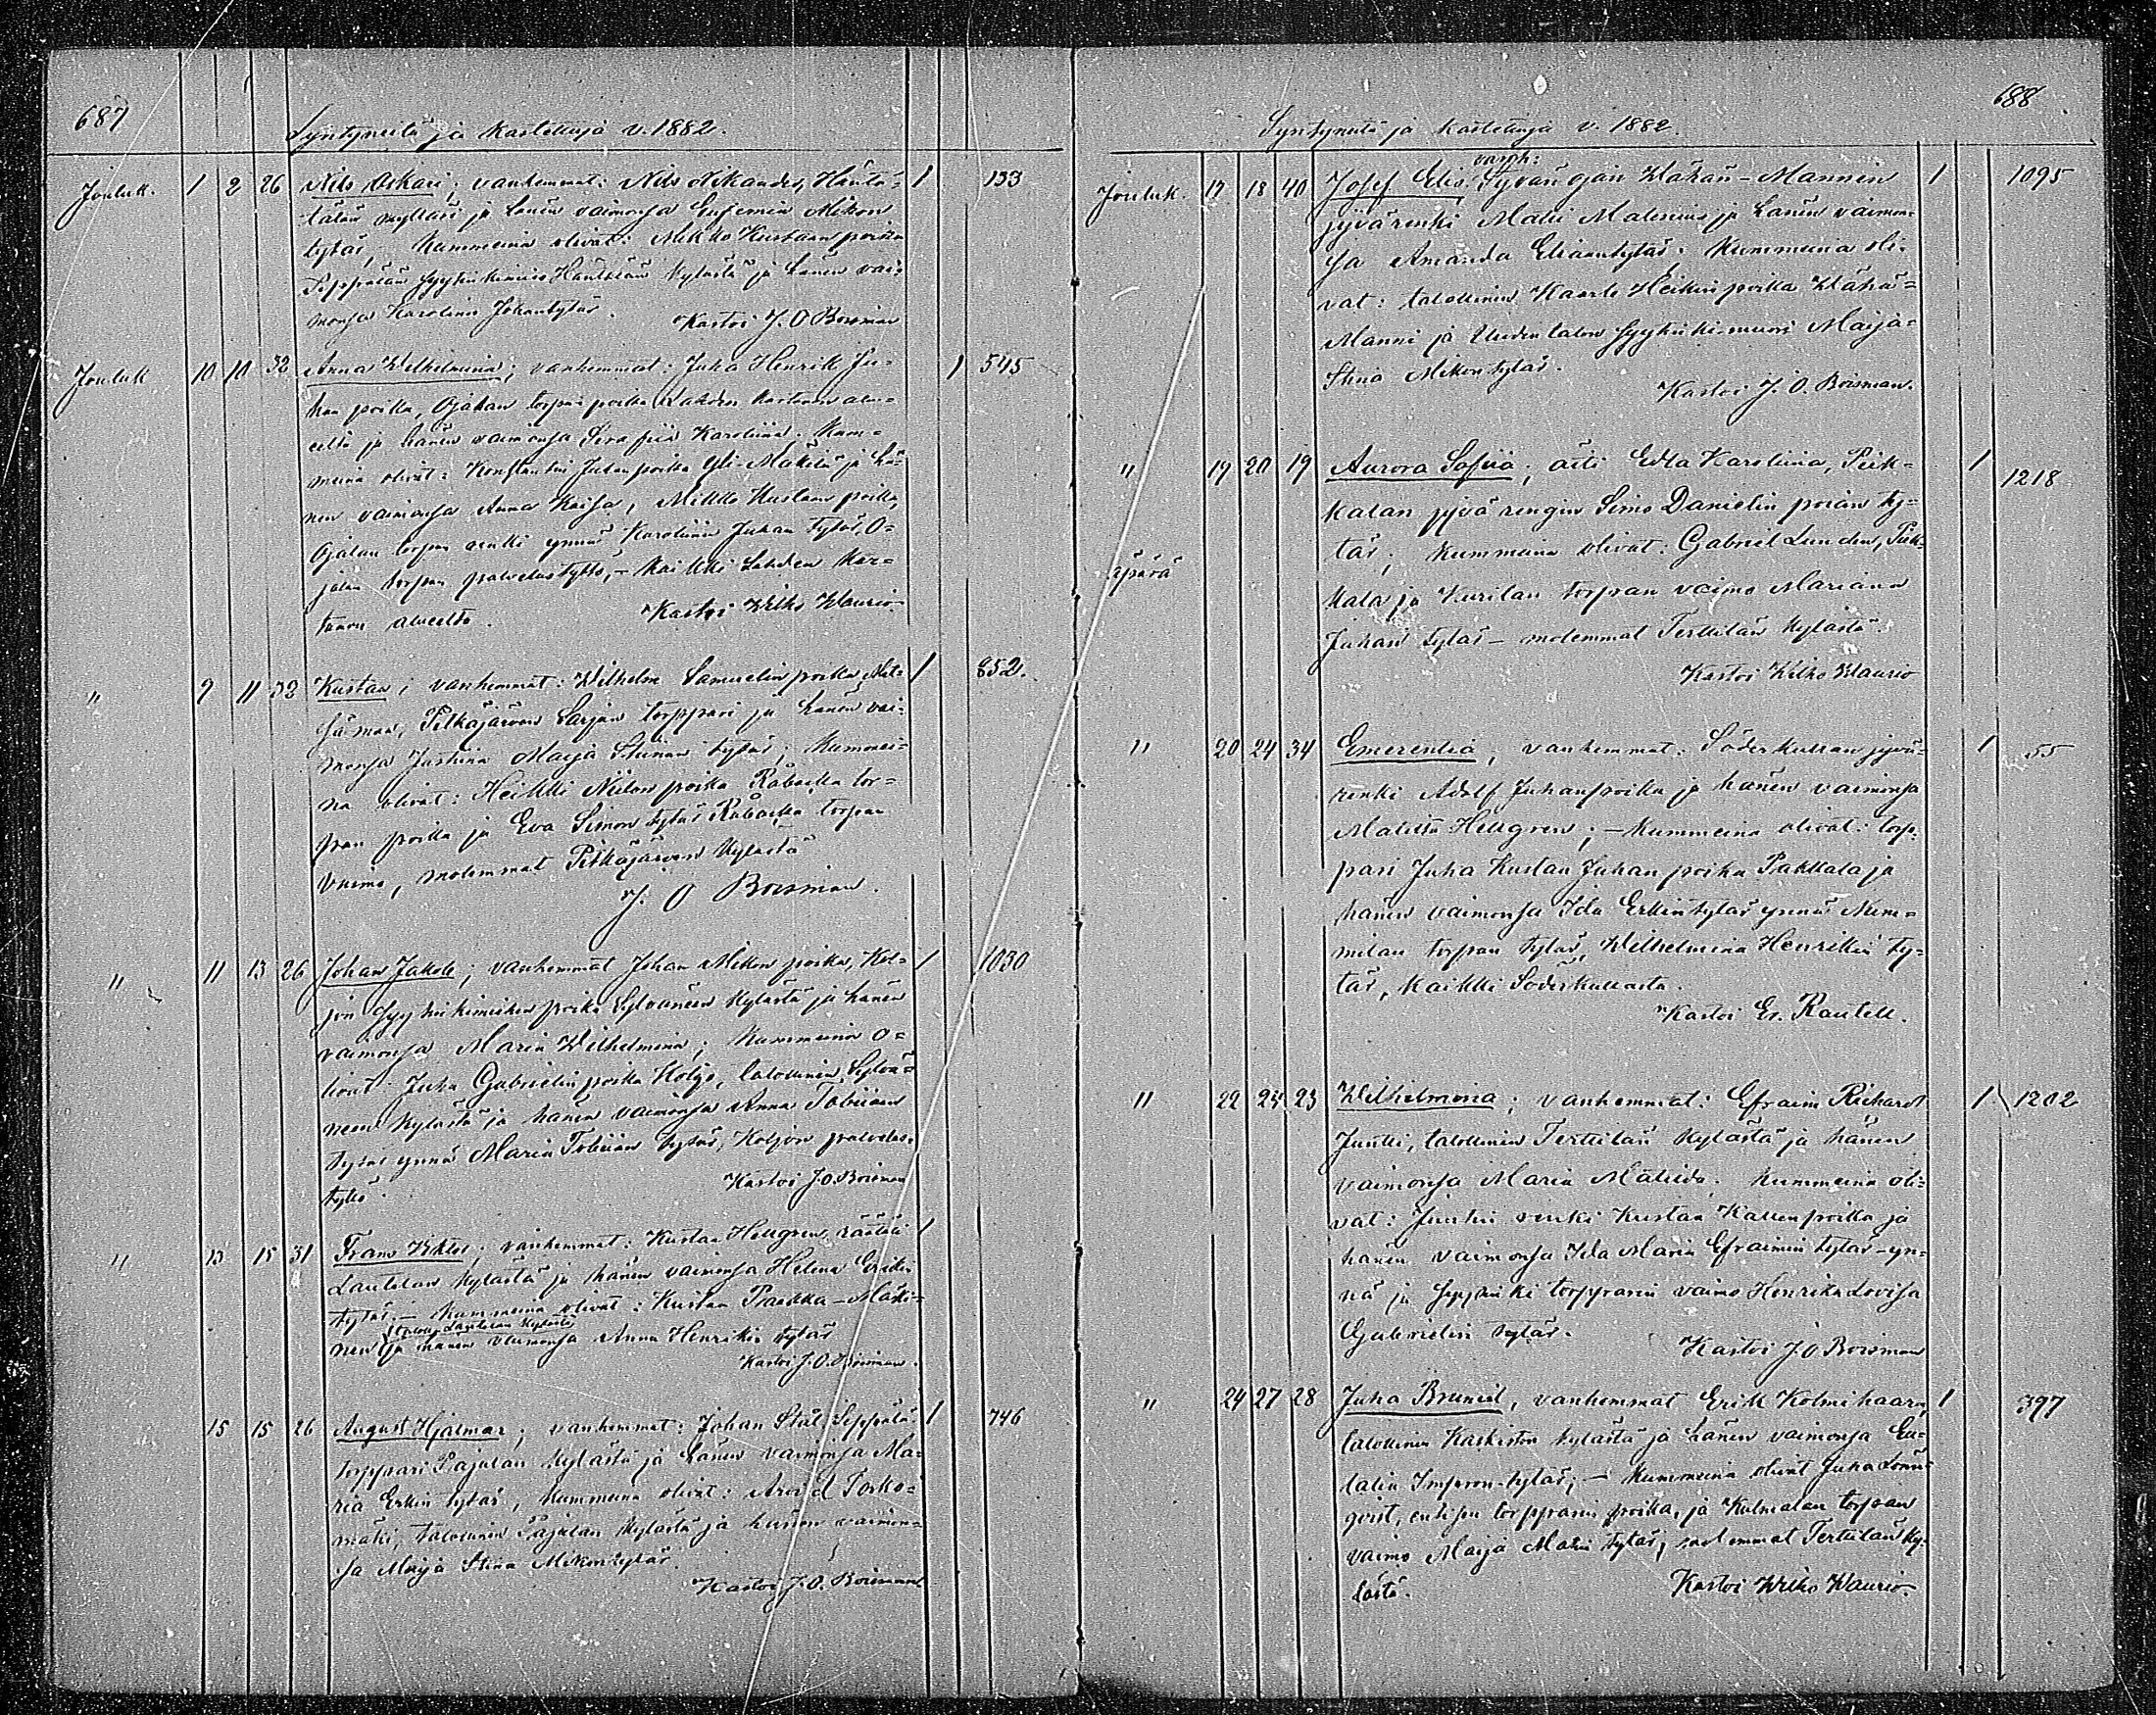 687
Syntyneitä ja kastettuja v. 1882.
Jouluk. 1 2 26 Nils Oskari; vanhemmat: Nils Nikander, Häntä= 1 133
tälän mylläri ja hänen vaimonsa Eufemia Mikon
tytär, Kummeina olivat: Mikko Kustaan poika
Seppälän syytinkimies Häntälän kylästä ja hänen vai=
monsa Karoliina Johantytär.
Kastoi J. O Boisman
Jouluk 10 10 32 Anna Wilhelmina; vanhemmat: Juha Henrik Ju= 1 545
han poika, Ojalan torpan poika Lahden kartanon alu=
eelta ja hänen vaimonsa Serafiia Karoliina. Kum=
meina olivat: Konstantin Juhanpoika Yli-Mäkilä ja hä=
nen vaimonsa Anna Kaisa, Mikko Kustaan poika,
Ojalan torpan renki ynnä Karoliina Juhan tytär, O=
jalan torpan palvelustyttö, – kaikki Lahden kar=
tanon alueelta.
Kastoi Wilho Waurio
" 9 11 32 Kustaa; vanhemmat: Wilhelm Samuelin poika 1 852.
Pitkäjärven Sarjan torppari ja hänen vai=
monsa Justiina Maija Stiinan tytär; Kummei=
na olivat: Heikki Niilon poika Råbacka tor=
pan poika ja Eva Simon tytär Råbacka torpan
vaimo, molemmat Pitkäjärven kylästä
J. O Boisman.
" 11 13 26 Johan Jakob; vanhemmat Johan Mikon poika, Kol= 1 1030
jon syytinkimiehen poika Sylväneen kylästä ja hänen
vaimonsa Maria Wilhelmina; Kummeina o=
livat Juha Gabrielin poika Koljo, talollinen Sylvä=
neen kylästä ja hänen vaimonsa Anna Tobiaan
tytär ynnä Maria Tobiaan tytär, Koljon palvelus=
tyttö.
Kastoi J. O. Boisman
" 13 15 31 Frans Viktor; vanhemmat: Kustaa Hellgren, räätäli 1
Lautelan kylästä ja hänen vaimonsa Helena Erikin
tytär. – Kummeina olivat: Kustaa Prakka-Mäki=
talon Lautelan kylästä
nen ja hänen vaimonsa Anna Henrikin tytär
Kastoi J. O. Boisman.
15 15 26 August Hjalmar; vanhemmat: Johan Stål, Seppälä 1 746
torppari Pajulan kylästä ja hänen vaimonsa Ma=
ria Erkin tytär, kummeina olivat: Arvid Torko=
mäki, talollinen Pajulan kylästä ja hänen vaimon=
sa Maija Stina Mikontytär.
Kastoi J. O. Boisman
688
Syntyneitä ja kastettuja v. 1882.
vanh:
Jouluk. 17 18 40 Josef Elis. Syvänojan Wähän-Mannin 1 1095
jyvärenki Matti Malenius ja hänen vaimon=
sa Amanda Eliaantytär: Kummeina oli=
vat: talollinen Kaarle Heikin poika Wähä=
Manni ja Uuden talon syytinkimuori Maija=
Stina Mikon tytär.
Kastoi J. O. Boisman.
" 19 20 19 Aurora Sofiia; äiti Edla Karoliina, Piik= 1 1218
kalan jyvä rengin Simo Danielin poian ty=
tär; Kummeina olivat: Gabriel Lunden, Piik=
äpärä
kala ja Kurilan torpan vaimo Mariana
Juhan tytär – molemmat Terttilän kylästä.
Kastoi Wilho Waurio
" 20 24 34 Emerentia; vanhemmat: Söderkullan jyvä= 1 55
renki Adolf Juhanpoika ja hänen vaimonsa
Matilda Hellgren; – Kummeina olivat: torp=
pari Juha Kustaa Juhan poika Pakkala ja
hänen vaimonsa Ida Erkintytär ynnä Num=
milan torpan tytär, Wilhelmina Henrikin ty=
tär, kaikki Söderkullasta.
Kastoi Er. Rautell.
" 22 25 23 Wilhelmina; vanhemmat: Efraim Richard 1 1202
Juntti, talollinen Terttilän kylästä ja hänen
vaimonsa Maria Matilda. Kummeina oli=
vat: Juntin renki Kustaa Kallenpoika ja
hänen vaimonsa Ida Maria Efraimin tytär – yn=
nä ja torpparin vaimo Henrika Lovisa
Gabrielin tytär.
Kastoi J. O Boisman
" 24 27 28 Juha Bruniel, vanhemmat Erik Kolmihaara, 1 397
talollinen Kaskiston kylästä ja hänen vaimonsa Eu=
lalia Impron-tytär; – Kummeina olivat Juha Lönn=
qvist, entisen torpparin poika, ja Kulmalan torpan
vaimo Maija Matin tytär, molemmat Terttilän ky=
lästä.
Kastoi Wilho Waurio.